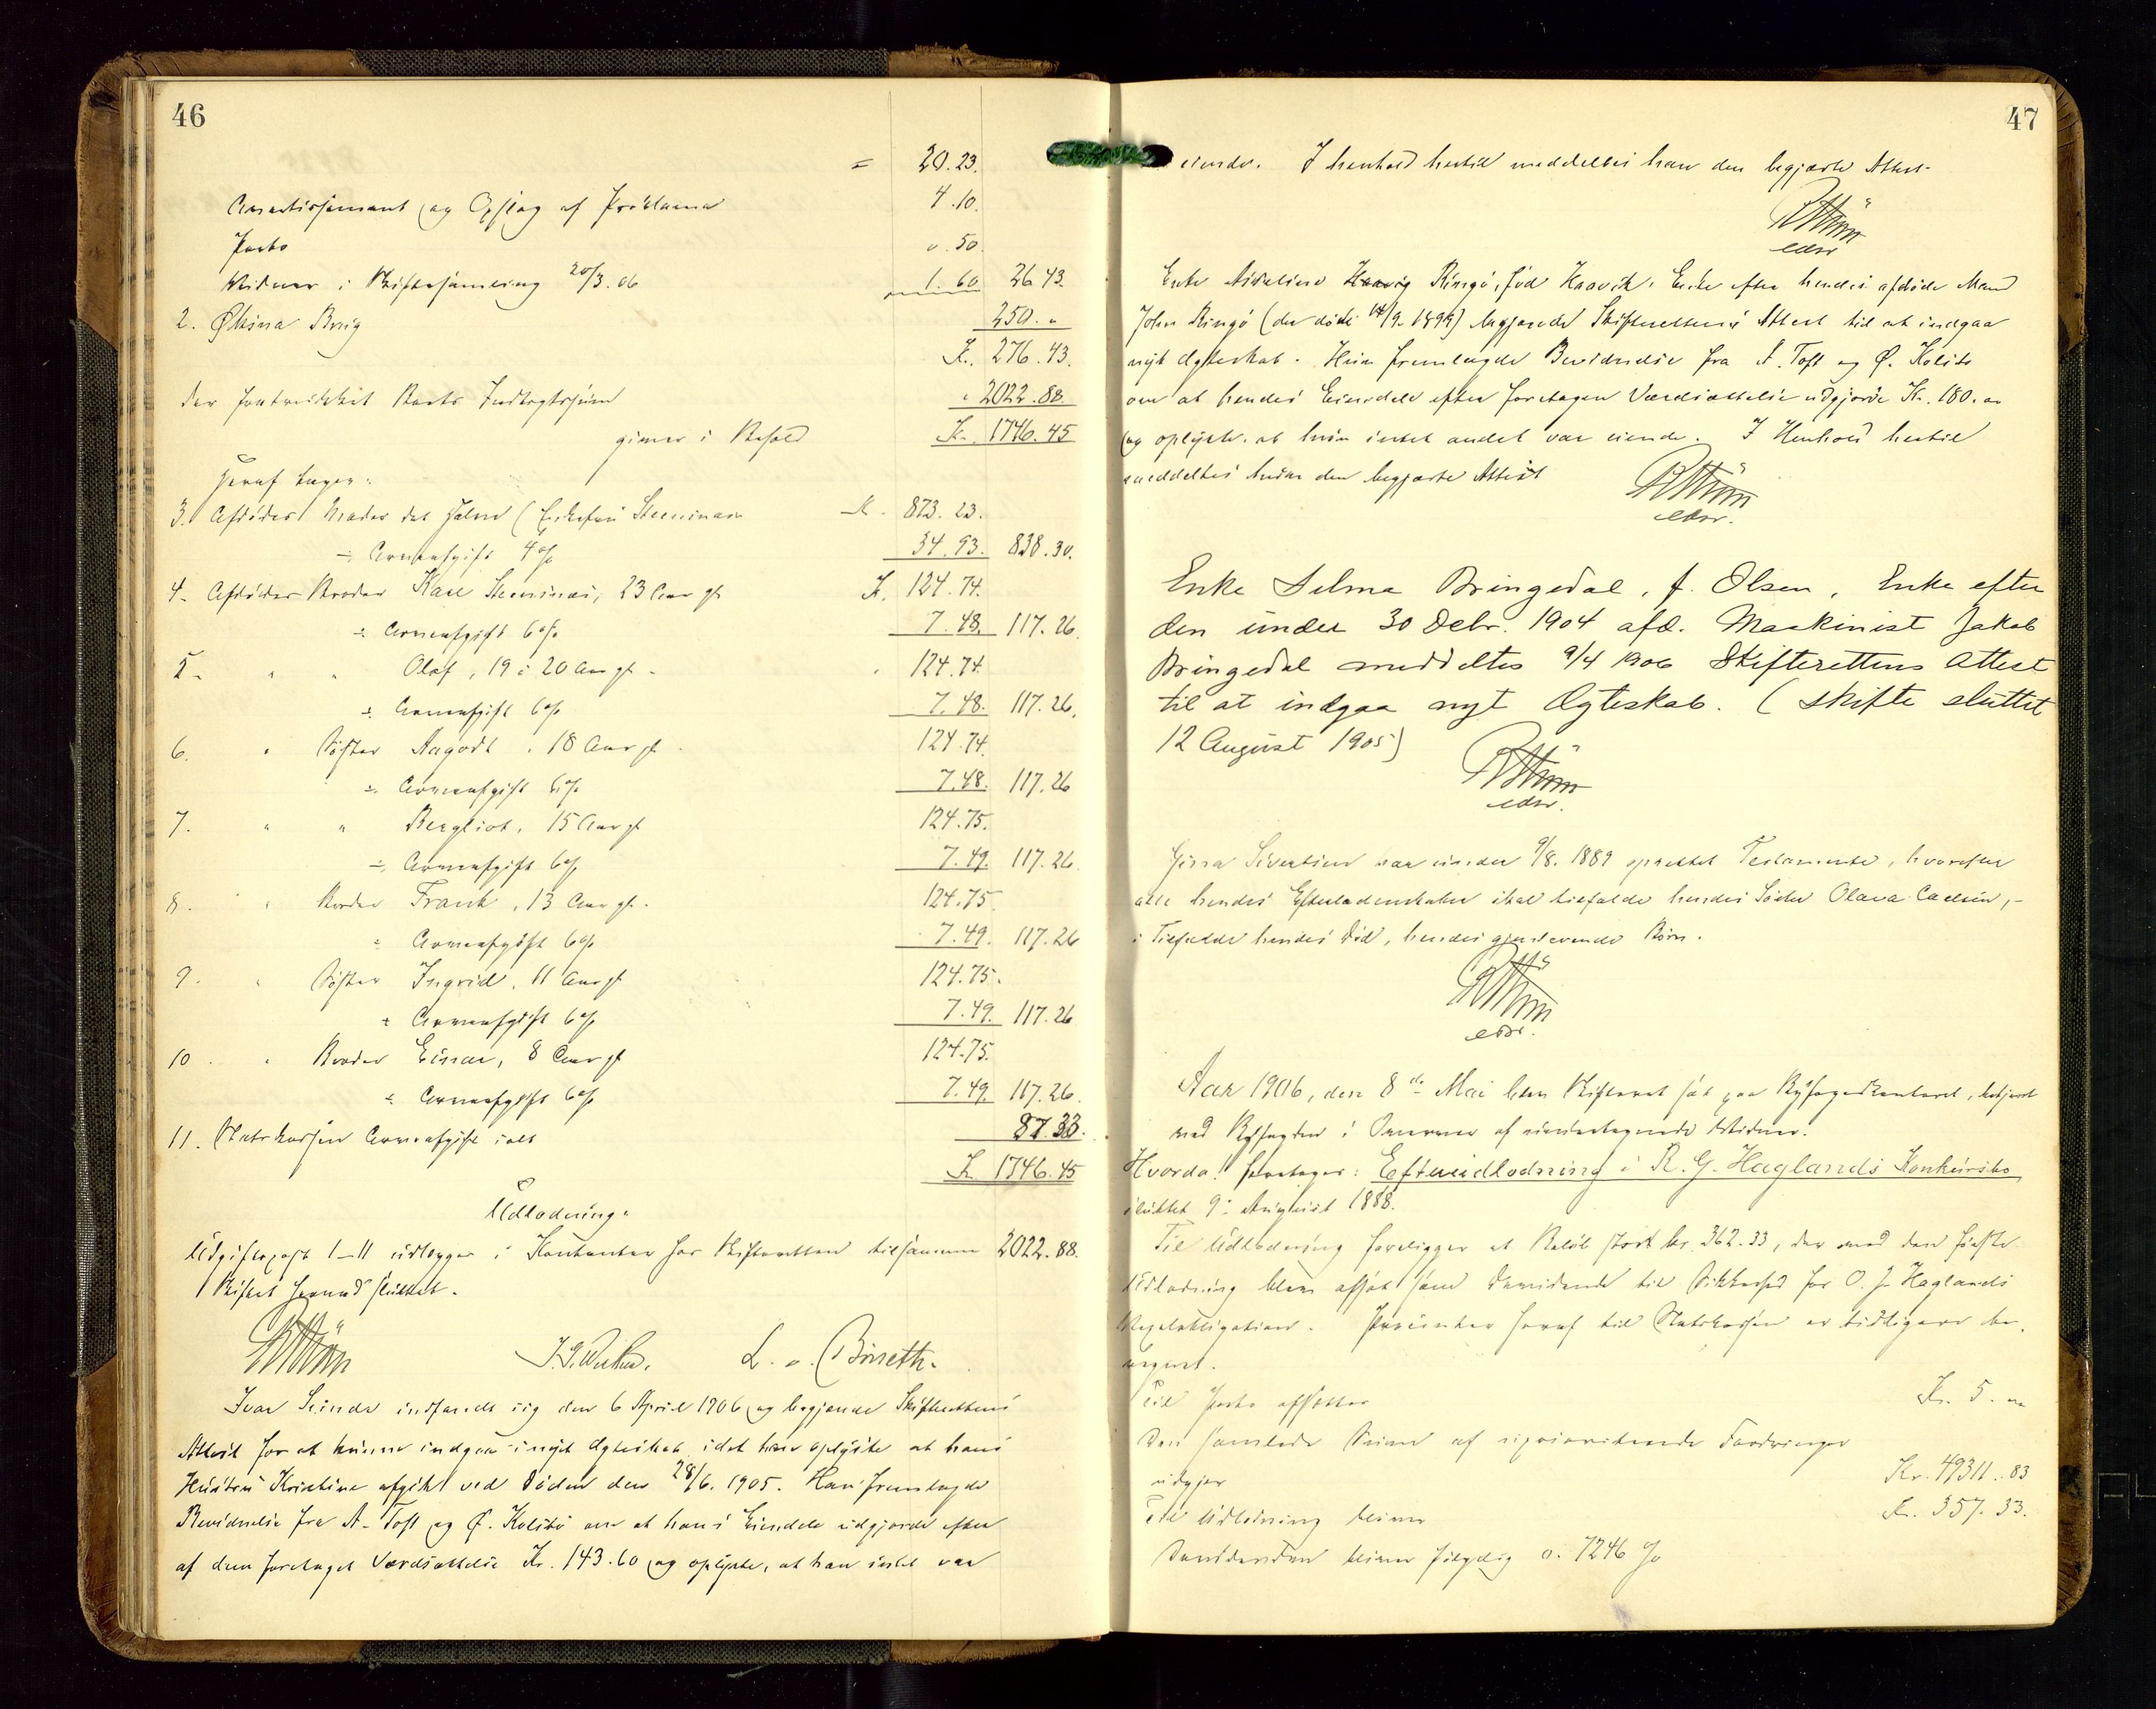 46
= 20.23.
Avertissement og Opslag af Proklama 4.10.
Porto 0.50.
Vidner i Skiftesamling 20/3.06 1.60 26.43.
2. Brüg 250. "
Kr. 276.43.
der fratrukket Boets Indtægtssüm 2022.88.
giver i Behold Kr. 1746.45
Heraf tager:
3. Afdødes Moder det halve (Enkefrü Kr. 873.23.
÷ Arveafgift 4% 34.93. 838.30.
4. Afdødes Broder Kare 23 Aar gl. Kr. 124.74.
÷ Arveafgift 6% 7.48. 117.26.
5. " " Olaf, 19 à 20 Aar gl. " 124.74.
÷ Arveafgift 6% 7.48. 117.26.
6. " Søster Aagodt, 18 Aar gl. 124.74.
÷ Arveafgift 6% 7.48. 117.26
7. " " Bergliot, 15 Aar gl. 124.75.
÷ Arveafgift 6% 7.49. 117.26.
8. " Broder Frank, 13 Aar gl. 124.75
÷ Arveafgift 6% 7.49. 117.26
9. " Søster Ingrid, 11 Aar gl. 124.75.
÷ Arveafgift 6% 7.49. 117.26
10. " Broder Einar, 8 Aar gl. 124.75.
÷ Arveafgift 6% 7.49. 117.26.
11. Statskassen Arveafgift ialt 87.33.
Kr. 1746.45
Udlodning.
Udgiftspost 1–11 udlægges i Kontanter hos Skifteretten tilsammen 2022.88.
Skiftet hermed slüttet.
Ivar indfandt sig den 6 April 1906 og begjærede Skifterettens
Attest for at künne indgaa i nyt Ægteskab, idet han oplyste at hans
Hüstrü Kristine afgik ved Døden den 28/6. 1905. Han fremlagde
Bevidnelse fra A. Toft og Ø. Kolstø om at hans Eiendele üdgjorde efter
af dem foretaget Værdsættelse Kr. 143.60 og oplyste, at han intet var
47
eiende. I henhold hertil meddeltes ham den begjærte Attest.
edsv.
Enke Ringø, fød Haavik, Enke efter hendes afdøde Mand
John Ringø (der døde 14/9. 1899) begjærede Skifterettens Attest til at indgaa
nyt Ægteskab. Hün fremlagde Bevidnelse fra A. Toft og Ø. Kolstø
om at hendes Eiendele efter foretagen Værdsættelse udgjorde Kr. 180. "
og oplyste, at hün intet andet var eiende. I Henhold hertil
meddeltes hende den begjærte Attest
edsv.
Enke Selma Bringedal, f. Olsen, Enke efter
den ünder 30 Decbr. 1904 afd. Maskinist Jakob
Bringedal meddeltes 9/4 1906 Skifterettens Attest
til at indgaa nyt Ægteskab. (Skifte slüttet
12 Augüst 1905)
edsv.
Sivertsen har ünder 9/8. 1889 oprettet Testamente, hvorefter
alle hendes Efterladenskaber skal tilfalde hendes Søster Olava Carlsen, –
i Tilfælde hendes Død, hendes gjenlevende Børn.
edsv.
Aar 1906, den 8de Mai blev Skifteret sat paa Byfogedkontoret, betjent
med Byfogden i Overvær af vidner.
Hvorda! foretoges: Efterüdlodning i R. G. Haglands Konkürsbo
slüttet 9. Augüst 1888.
Til Udlodning foreligger et Beløb stort kr. 362.33, der ved den første
Udlodning blev afsat som Dividende til Sikkerhed for O. J. Haglands
Procenter heraf til Statskassen er tidligere be-
regnet.
Til Porto afsættes Kr. 5. "
Den samlede Süm af üprioriterede Fordringer
üdgjør Kr. 49311.83
Til Udlodning bliver Kr. 357.33.
Dividenden bliver følgelig 0.7246 %